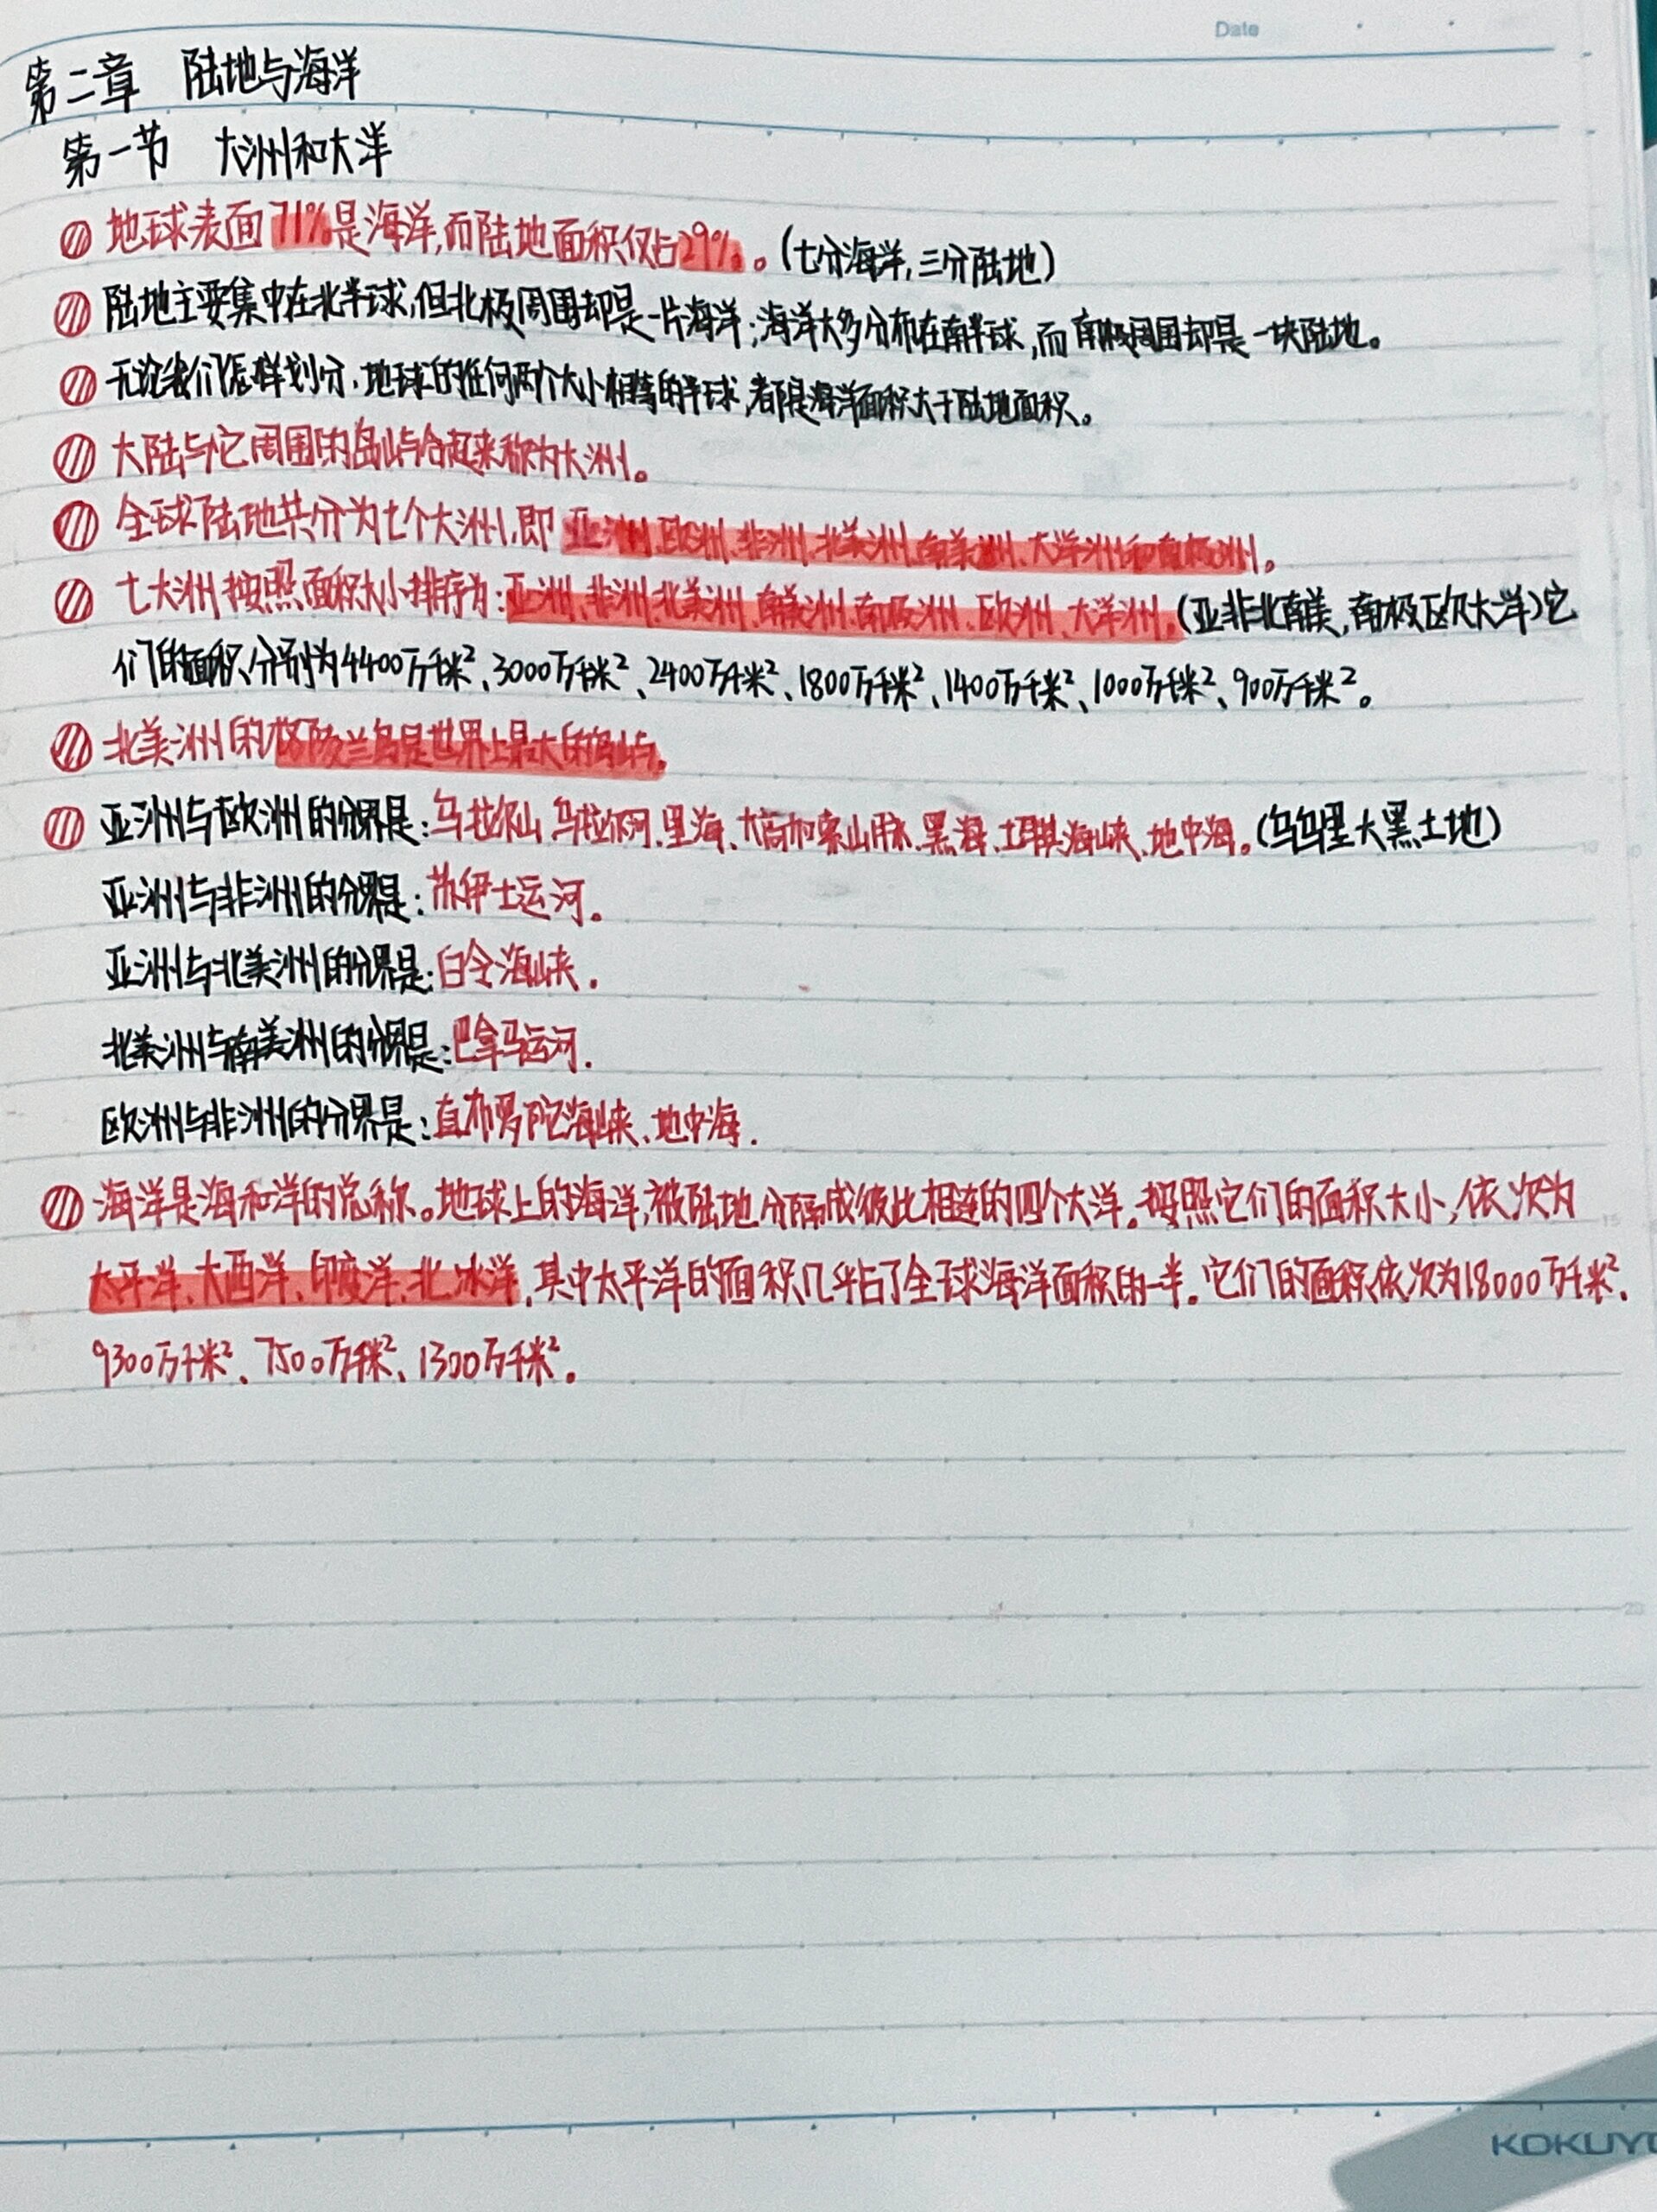 Date
第二章 陆地与海洋
第一节 大洲和大洋
地球表面71%是海洋,而陆地面积仅占29%。(七分海洋,三分陆地)
陆地主要集中在北半球,但北极周围却是一片海洋;海洋大多分布在南半球,而南极周围却是一块陆地。
无论我们怎样划分,地球的任何两个大小相等的半球,都是海洋面积大于陆地面积。
大陆与它周围的岛屿合起来称为大洲。
全球陆地共分为七个大洲,即亚洲、欧洲、非洲、北美洲、南美洲、大洋洲和南极洲。
七大洲按照面积大小排序为:亚洲、非洲、北美洲、南美洲、南极洲、欧洲、大洋洲。(亚非北南美,南极欧大洋)它
们的面积分别为4400万千米²、3000万千米²、2400万千米²、1800万千米²、1400万千米²、1000万千米²、900万千米²。
北美洲的格陵兰岛是世界上最大的岛屿。
亚洲与欧洲的分界是:乌拉尔山、乌拉尔河、里海、大高加索山脉、黑海、土耳其海峡、地中海。(乌乌里大黑土地)
亚洲与非洲的分界是:苏伊士运河.
亚洲与北美洲的分界是:白令海峡.
北美洲与南美洲的分界是:巴拿马运河.
欧洲与非洲的分界是:直布罗陀海峡、地中海.
海洋是海和洋的总称。地球上的海洋,被陆地分隔成彼此相连的四个大洋.按照它们的面积大小,依次为
太平洋、大西洋、印度洋、北冰洋,其中太平洋的面积几乎占了全球海洋面积的一半。它们的面积依次为18000万千米²、
9300万千米²、7500万千米²、1300万千米²。
15
20
KOKUYO